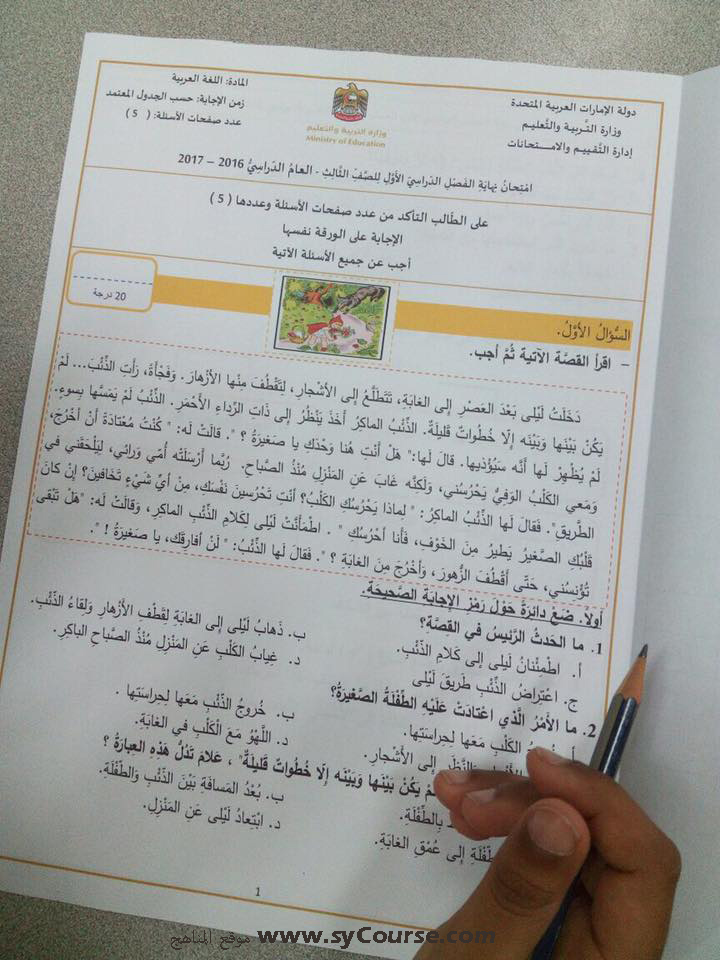 دولة الإمارات العربية المتحدة
وزارة التَّربية والتَّعليم
إدارة التَّقييم والامتحانات
وزارة التربية والتعليم
Ministry of Education
المادة: اللغة العربية
زمن الإجابة: حسب الجدول المعتمد
عدد صفحات الأسئلة: ( 5 )
امْتِحانُ نِهايَةِ الفَصْلِ الدّراسِيِّ الأَوَّلِ لِلصَّفِّ الثّالِثِ - العامُ الدّراسِيُّ 2016 – 2017
على الطَّالب التأكد من عدد صفحات الأسئلة وعددها ( 5 )
الإجابة على الورقة نفسها
أجب عن جميع الأسئلة الآتية
20 درجة
السُّؤالُ الأَوَّلُ.
– اقرأ القصَّة الآتية ثُمَّ أجب.
دَخَلَتْ لَيْلى بَعْدَ العَصْرِ إلى الغابَةِ، تَتَطَلَّعُ إلى الأشْجارِ، لِتَقْطُفَ مِنْها الأَزْهارَ. وَفَجْأَةً، رَأَتِ الذِّئْبَ... لَمْ
يَكُنْ بَيْنَها وَبَيْنَه إلّا خُطُواتٌ قَليلَةٌ. الذِّئْبُ الماكِرُ أَخَذَ يَنْظُرُ إلى ذاتِ الرِّداءِ الأَحْمَرِ. الذِّئْبُ لَمْ يَمَسَّها بِسوءٍ.
لَمْ يُظْهِرْ لَها أَنَّه سَيُؤْذيها. قالَ لَها: "هَلْ أَنْتِ هُنا وَحْدَكِ يا صَغيرَةُ ؟ ". قالَتْ لَه: " كُنْتُ مُعْتادَةً أَنْ أَخْرُجَ،
وَمَعي الكَلْبُ الوَفِيُّ يَحْرُسُني، وَلكِنَّه غابَ عَنِ المَنْزِلِ مُنْذُ الصَّباحِ. رُبَّما أَرْسَلَتْه أُمّي وَرائي، لِيَلْحَقَني في
الطَّريقِ". فَقالَ لَها الذِّئْبُ الماكِرُ: " لِماذا يَحْرُسُكِ الكَلْبُ؟ أَنْتِ تَحْرُسينَ نَفْسَكِ، مِنْ أَيِّ شَيْءٍ تَخافينَ؟ إنْ كانَ
قَلْبُكِ الصَّغيرُ يَطيرُ مِنَ الخَوْفِ، فَأَنا أَحْرُسُكِ " . اطْمَأَنَّتْ لَيْلى لِكَلامِ الذِّئْبِ الماكِرِ، وَقالَتْ لَه: "هَلْ تَبْقى
تُؤْنِسُني، حَتّى أَقْطُفَ الزُّهورَ، وَأَخْرُجَ مِنَ الغابَةِ ؟ ". فَقالَ لَها الذِّئْبُ: " لَنْ أُفارِقَكِ، يا صَغيرَةُ ! ".
أولا. ضَعْ دائِرَةً حَوْلَ رَمْزِ الإجابَةِ الصَّحيحَةِ.
1. ما الحَدَثُ الرَّئيسُ في القصَّةِ؟
أ. اطْمِئْنانُ لَيلى إلى كَلامِ الذِّئْبِ. ب. ذَهابُ لَيْلى إلى الغابَةِ لِقَطْفِ الأَزْهارِ وَلِقاءُ الذِّئْبِ.
ج. اعْتِراضُ الذِّئْبِ طَريقَ لَيْلى د. غِيابُ الكَلْبِ عَنِ المَنْزِلِ مُنْذُ الصَّباحِ الباكِرِ.
2. ما الأَمْرُ الَّذي اعْتادَتْ عَلَيْهِ الطِّفْلَةُ الصَّغيرَةُ؟
الكَلْبِ مَعَها لِحِراسَتِها. ب. خُروجُ الذِّئْبِ مَعَها لِحِراسَتِها .
إلى الأَشْجارِ. د. اللَّهْوُ مَعَ الكَلْبِ في الغابَةِ.
يَكُنْ بَيْنَها وَبَيْنَه إلّا خُطُواتٌ قَليلَةٌ" ، عَلامَ تَدُلُّ هَذِهِ العِبارَةُ ؟
بِالطِّفْلَةِ. ب. بُعْدُ المَسافَةِ بَيْنَ الذِّئْبِ وَالطِّفْلَةِ.
إلى عُمْقِ الغابَةِ. د. ابْتِعادُ لَيْلى عَنِ المَنْزِلِ.
1
موقع المناهج www.syCourse.com